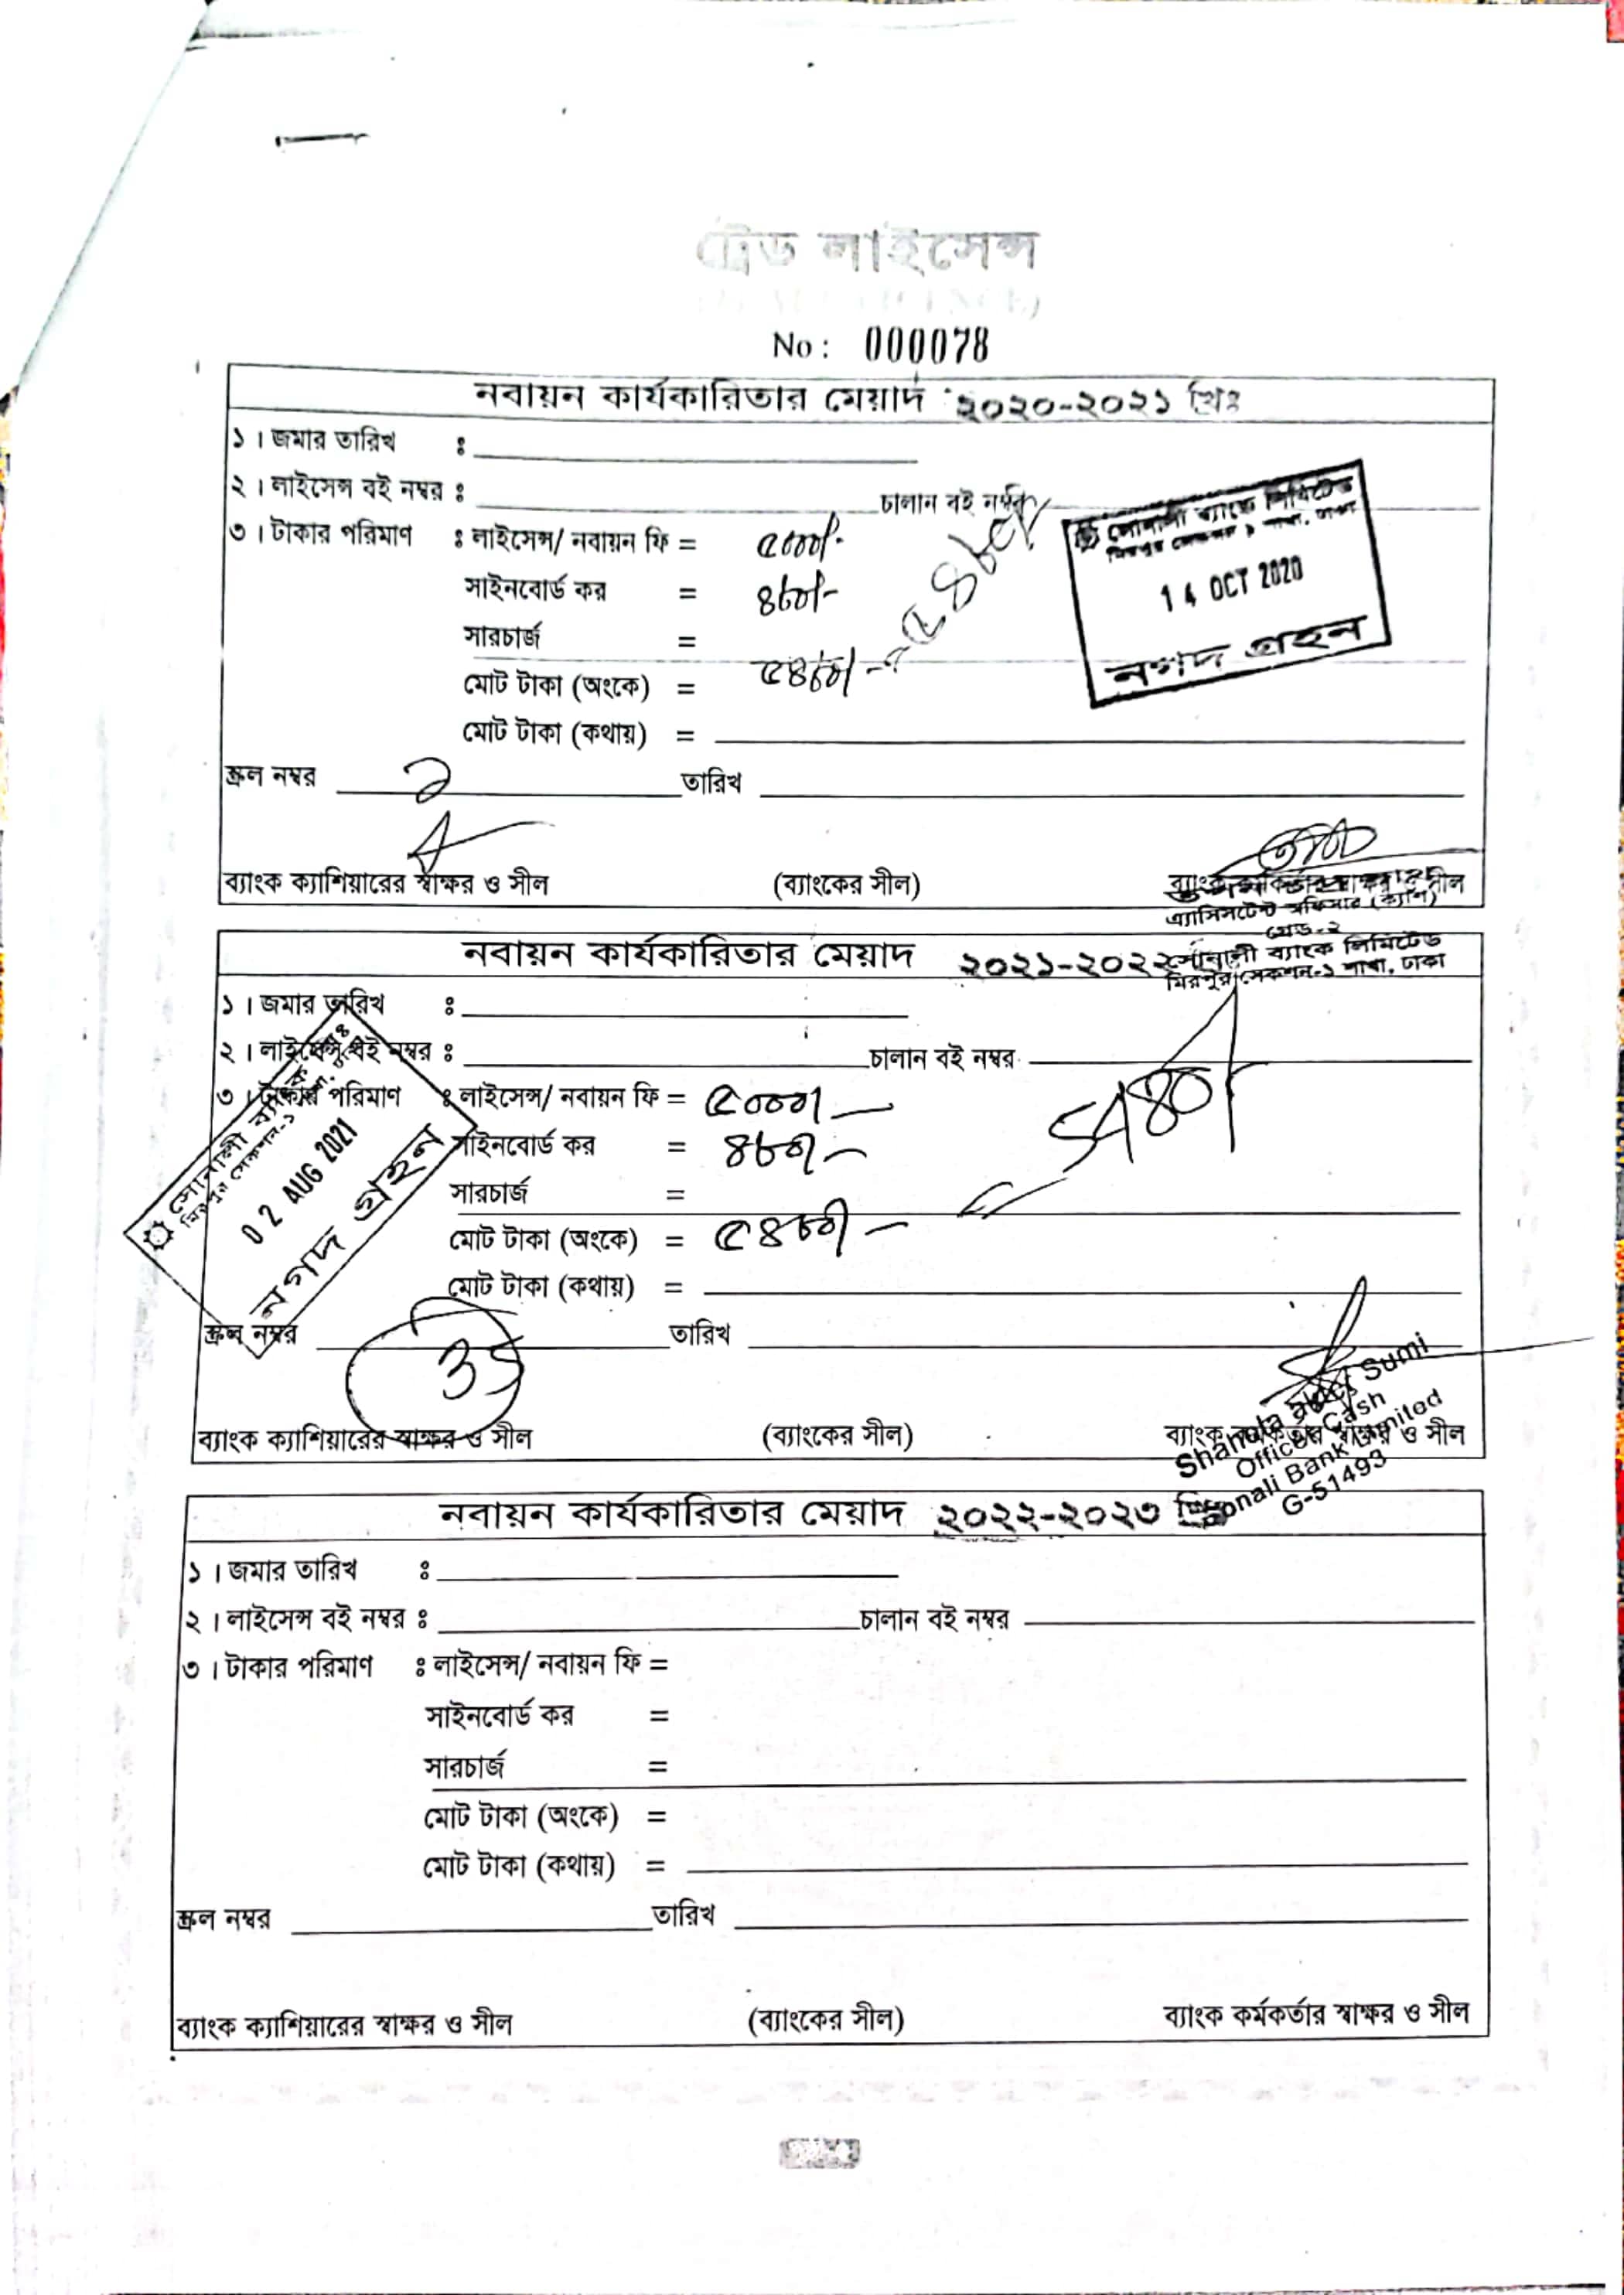 ট্রেড লাইসেন্স
No: 000078
নবায়ন কার্যকারিতার মেয়াদ ২০২০-২০২১ খ্রিঃ
১। জমার তারিখ ঃ
২। লাইসেন্স বই নম্বর ঃ চালান বই নম্বর
৩। টাকার পরিমাণ ঃ লাইসেন্স/ নবায়ন ফি = ৫০০০/-
সাইনবোর্ড কর = ৪৮০/-
সারচার্জ =
মোট টাকা (অংকে) = ৫৪৮০/- = ৫৪৮০/
মোট টাকা (কথায়) =
সোনালী ব্যাংক লিমিটেড
মিরপুর সেকশন ১ শাখা, ঢাকা
14 OCT 2020
নগদ গ্রহন
স্ক্রল নম্বর ২ তারিখ
ব্যাংক ক্যাশিয়ারের স্বাক্ষর ও সীল (ব্যাংকের সীল) ব্যাংক কর্মকর্তার স্বাক্ষর ও সীল
এ্যাসিসটেন্ট অফিসার (ক্যাশ)
গ্রেড-২
সোনালী ব্যাংক লিমিটেড
মিরপুর সেকশন-১ শাখা, ঢাকা
নবায়ন কার্যকারিতার মেয়াদ ২০২১-২০২২
১। জমার তারিখ ঃ
২। লাইসেন্স বই নম্বর ঃ চালান বই নম্বর
৩। টাকার পরিমাণ ঃ লাইসেন্স/ নবায়ন ফি = ৫০০০/-
সাইনবোর্ড কর = ৪৮০/-
সারচার্জ =
মোট টাকা (অংকে) = ৫৪৮০/- = 5480/
মোট টাকা (কথায়) =
সোনালী ব্যাংক লিঃ
মিরপুর সেকশন-১ শাখা, ঢাকা
02 AUG 2021
নগদ গ্রহন
স্ক্রল নম্বর তারিখ
ব্যাংক ক্যাশিয়ারের স্বাক্ষর ও সীল (ব্যাংকের সীল) ব্যাংক কর্মকর্তার স্বাক্ষর ও সীল
Sumi
Officer Cash
Sonali Bank Limited
G-51493
নবায়ন কার্যকারিতার মেয়াদ ২০২২-২০২৩ খ্রিঃ
১। জমার তারিখ ঃ
২। লাইসেন্স বই নম্বর ঃ চালান বই নম্বর
৩। টাকার পরিমাণ ঃ লাইসেন্স/ নবায়ন ফি =
সাইনবোর্ড কর =
সারচার্জ =
মোট টাকা (অংকে) =
মোট টাকা (কথায়) =
স্ক্রল নম্বর তারিখ
ব্যাংক ক্যাশিয়ারের স্বাক্ষর ও সীল (ব্যাংকের সীল) ব্যাংক কর্মকর্তার স্বাক্ষর ও সীল